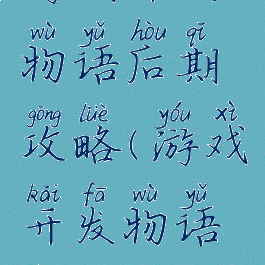 wù yǔ hòu qī
物语后期
gōng lüè yóu xì
攻略(游戏
kāi fā wù yǔ
开发物语